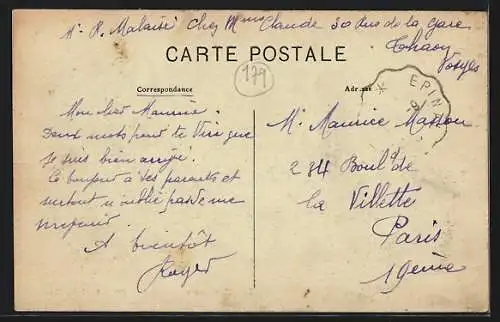 Mr R. Malaisé chez Mme Claude 30 Rue de la gare
Thaon
Vosges
CARTE POSTALE
179
Correspondance
Adresse
EPIN
Mon cher Maurice.
Deux mots pour te dire que
je suis bien arrivé.
Le bonjour à tes parents et
surtout n'oublie pas de me
A bientôt
Roger
Mr Maurice Masson
234 Boul. de
la Villette
Paris
19ème